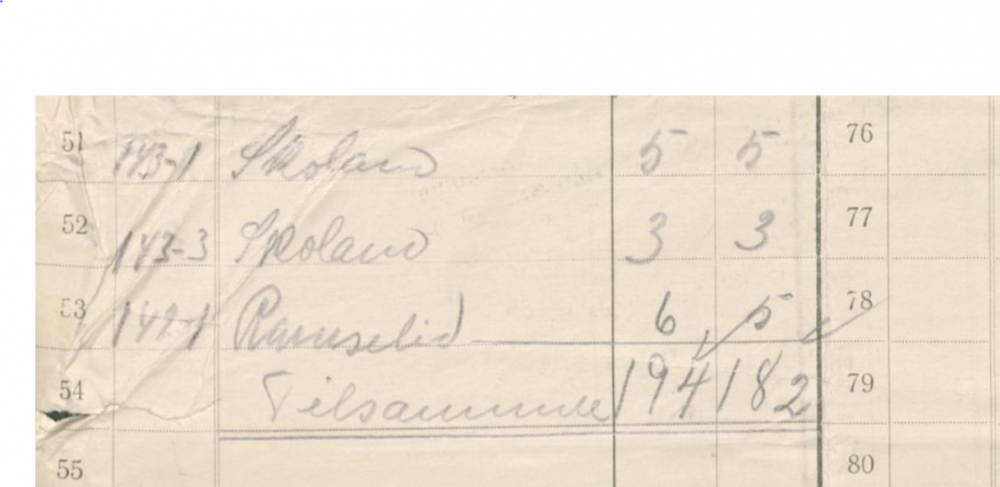 51 143-1 Skoland 5 5 76
52 143-3 Skoland 3 3 77
53 149-1 Ramselid 6 5 78
54 Tilsammen 194 182 79
55 80